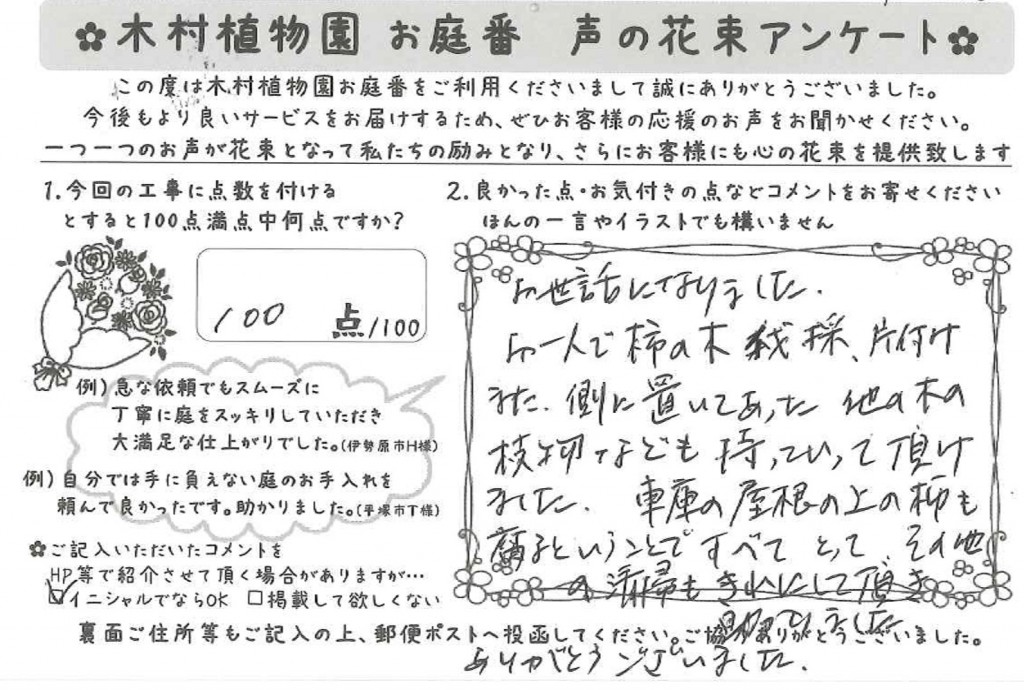 ✿木村植物園 お庭番 声の花束アンケート✿
この度は木村植物園お庭番をご利用くださいまして誠にありがとうございました。
今後もより良いサービスをお届けするため、ぜひお客様の応援のお声をお聞かせください。
一つ一つのお声が花束となって私たちの励みとなり、さらにお客様にも心の花束を提供致します
1.今回の工事に点数を付ける
とすると100点満点中何点ですか?
100 点/100
例)急な依頼でもスムーズに
丁寧に庭をスッキリしていただき
大満足な仕上がりでした。(伊勢原市H様)
例)自分では手に負えない庭のお手入れを
頼んで良かったです。助かりました。(平塚市T様)
✿ご記入いただいたコメントを
HP等で紹介させて頂く場合がありますが…
☑イニシャルでならOK □掲載して欲しくない
2.良かった点・お気付きの点などコメントをお寄せください
ほんの一言やイラストでも構いません
お世話になりました.
お一人で柿の木 伐採、片付け
また、側に置いてあった 他の木の
枝切りなども 持っていって頂け
ました. 車庫の屋根の上の柿も
腐るということで すべて とって、その他
の清掃も きれいにして頂き
助かりました
ありがとうございました.
裏面ご住所等もご記入の上、郵便ポストへ投函してください。ご協力ありがとうございました。